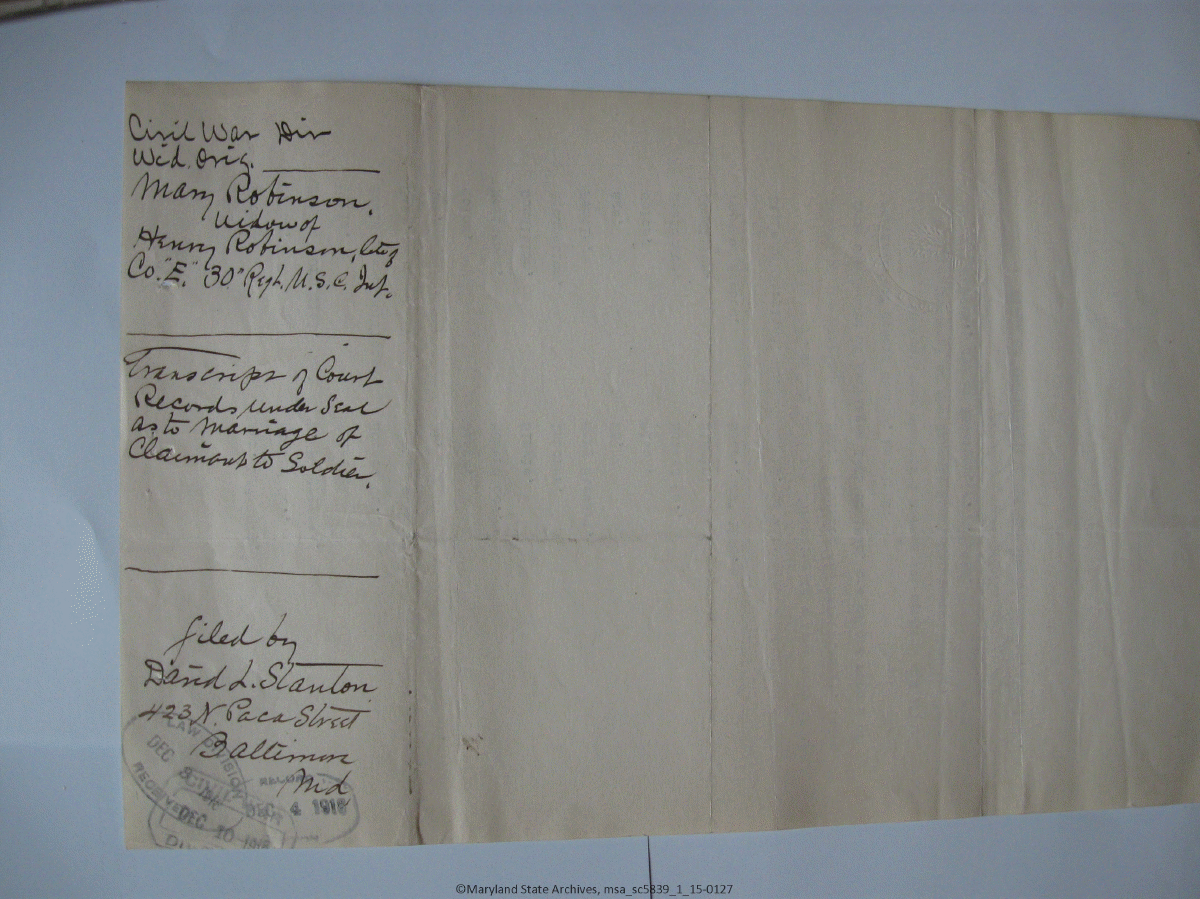 Civil War Div
Wid. Orig.
Mary Robinson,
Widow of
Henry Robinson, late of
Co. "E." 30" Regt. U.S.C. Inf.
Transcript of Court
Records under Seal
as to Marriage of
Claimant to Soldier.
filed by
David L. Stanton
423 N. Paca Street
Baltimore
Md
LAW DIVISION
DEC
RECEIVED
DEC 4 1916
DEC 10
©Maryland State Archives, msa_sc5839_1_15-0127